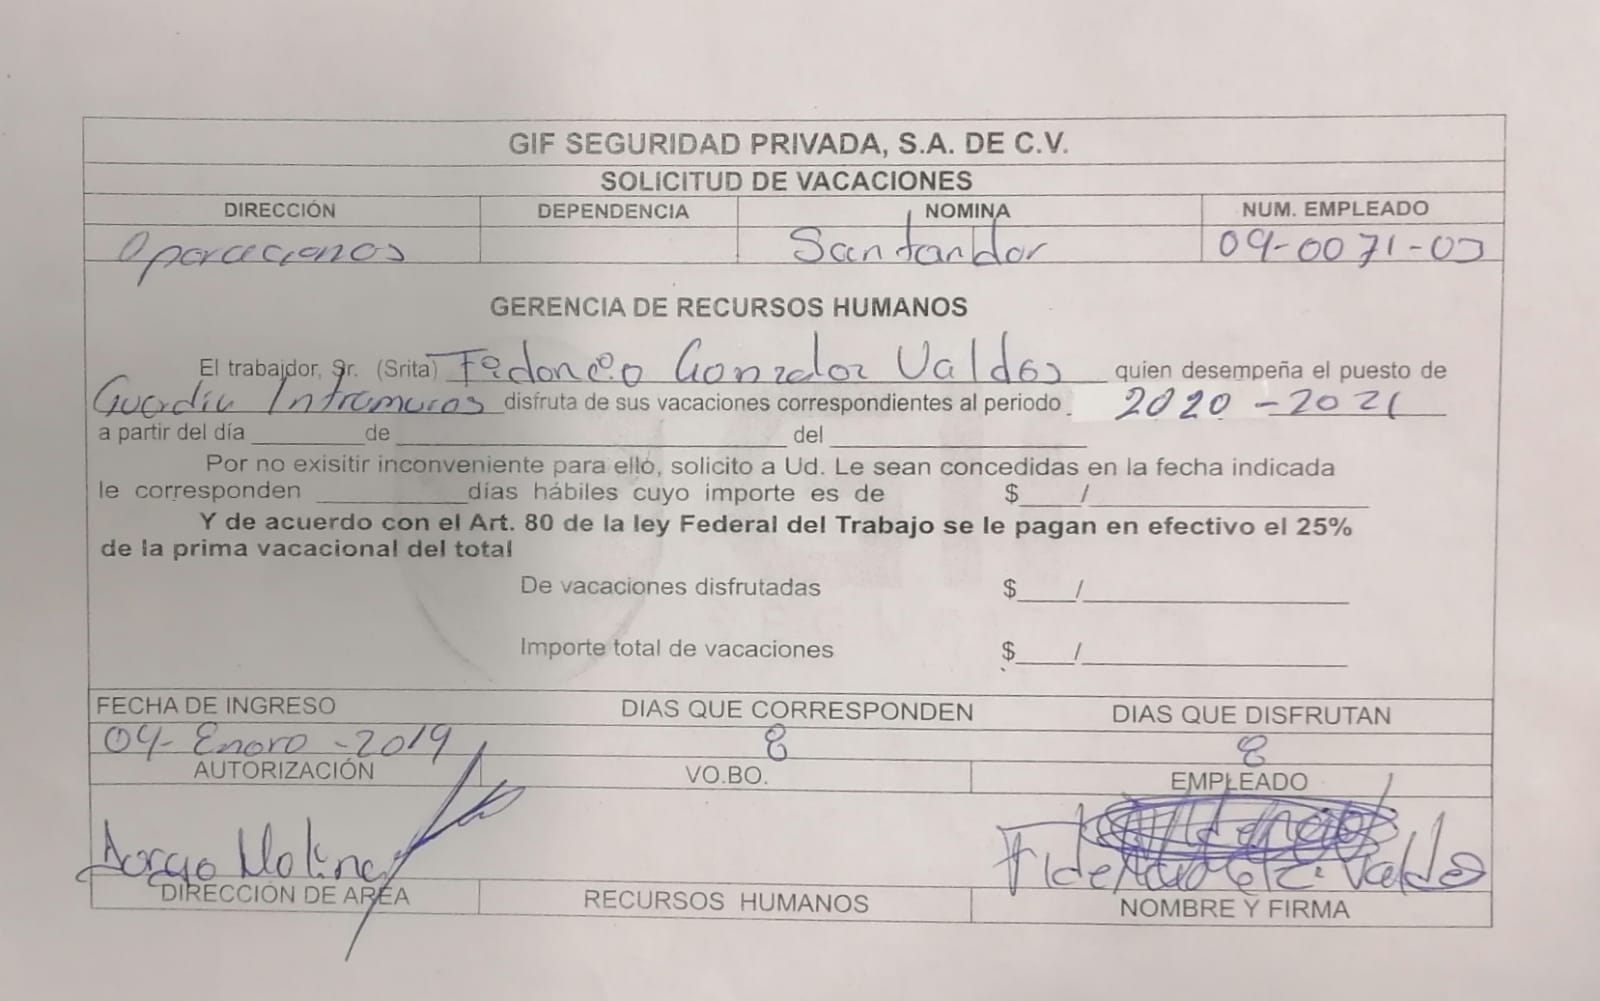 GIF SEGURIDAD PRIVADA, S.A. DE C.V.
SOLICITUD DE VACACIONES
DIRECCIÓN DEPENDENCIA NOMINA NUM. EMPLEADO
Operaciones Santander 09-0071-03
GERENCIA DE RECURSOS HUMANOS
El trabajdor, Sr. (Srita) Gonzalez Valdes quien desempeña el puesto de
Guardia Intramuros disfruta de sus vacaciones correspondientes al periodo 2020-2021
a partir del día ___ de ___ del ___
Por no exisitir inconveniente para ello, solicito a Ud. Le sean concedidas en la fecha indicada
le corresponden ___ días hábiles cuyo importe es de $ /
Y de acuerdo con el Art. 80 de la ley Federal del Trabajo se le pagan en efectivo el 25%
de la prima vacacional del total
De vacaciones disfrutadas $ /
Importe total de vacaciones $ /
FECHA DE INGRESO DIAS QUE CORRESPONDEN DIAS QUE DISFRUTAN
04-Enero-2019 8 8
AUTORIZACIÓN VO.BO. EMPLEADO
Jorge Molina Valdes
DIRECCIÓN DE AREA RECURSOS HUMANOS NOMBRE Y FIRMA